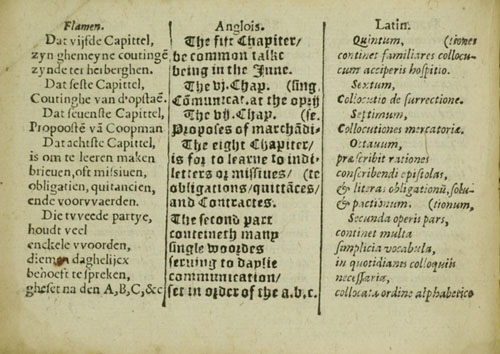 Flamen.
Dat vijfde Capittel,
zyn ghemeyne coutingē
zynde ter herberghen.
Dat seste Capittel,
Coutinghe van d'opstaē.
Dat seuenste Capittel,
Propoostē vā Coopman
Dat achtste Capittel,
is om te leeren maken
brieuen, oft missiuen,
obligatien, quitancien,
ende voorvvaerden.
Die tvveede partye,
houdt veel
enckele vvoorden,
diemen daghelijcx
behoeft te spreken,
gheset na den A, B, C, &c
Anglois.
The fift Chapiter/
be common talke
being in the Inne.
The vj. Chap. (sing.
Cōmunicat. at the oprij
The vij. Chap. (se.
Proposes of marchādi-
The eight Chapiter/
is for to learne to indi-
letters or missiues/ (te
obligations/quittāces/
and Contractes.
The second part
conteineth many
single woordes
seruing to daylie
communication/
set in order of the a.b.c.
Latin.
Quintum, (tiones
continet familiares collocu-
cum acciperis hospitio.
Sextum,
Collocutio de surrectione.
Septimum,
Collocutiones mercatoriæ.
Octauum,
præscribit rationes
conscribendi epistolas,
& literas obligationū, solu-
& pactionum. (tionum,
Secunda operis pars,
continet multa
simplicia vocabula,
in quotidianis colloquiis
necessaria,
collocata ordine alphabetico